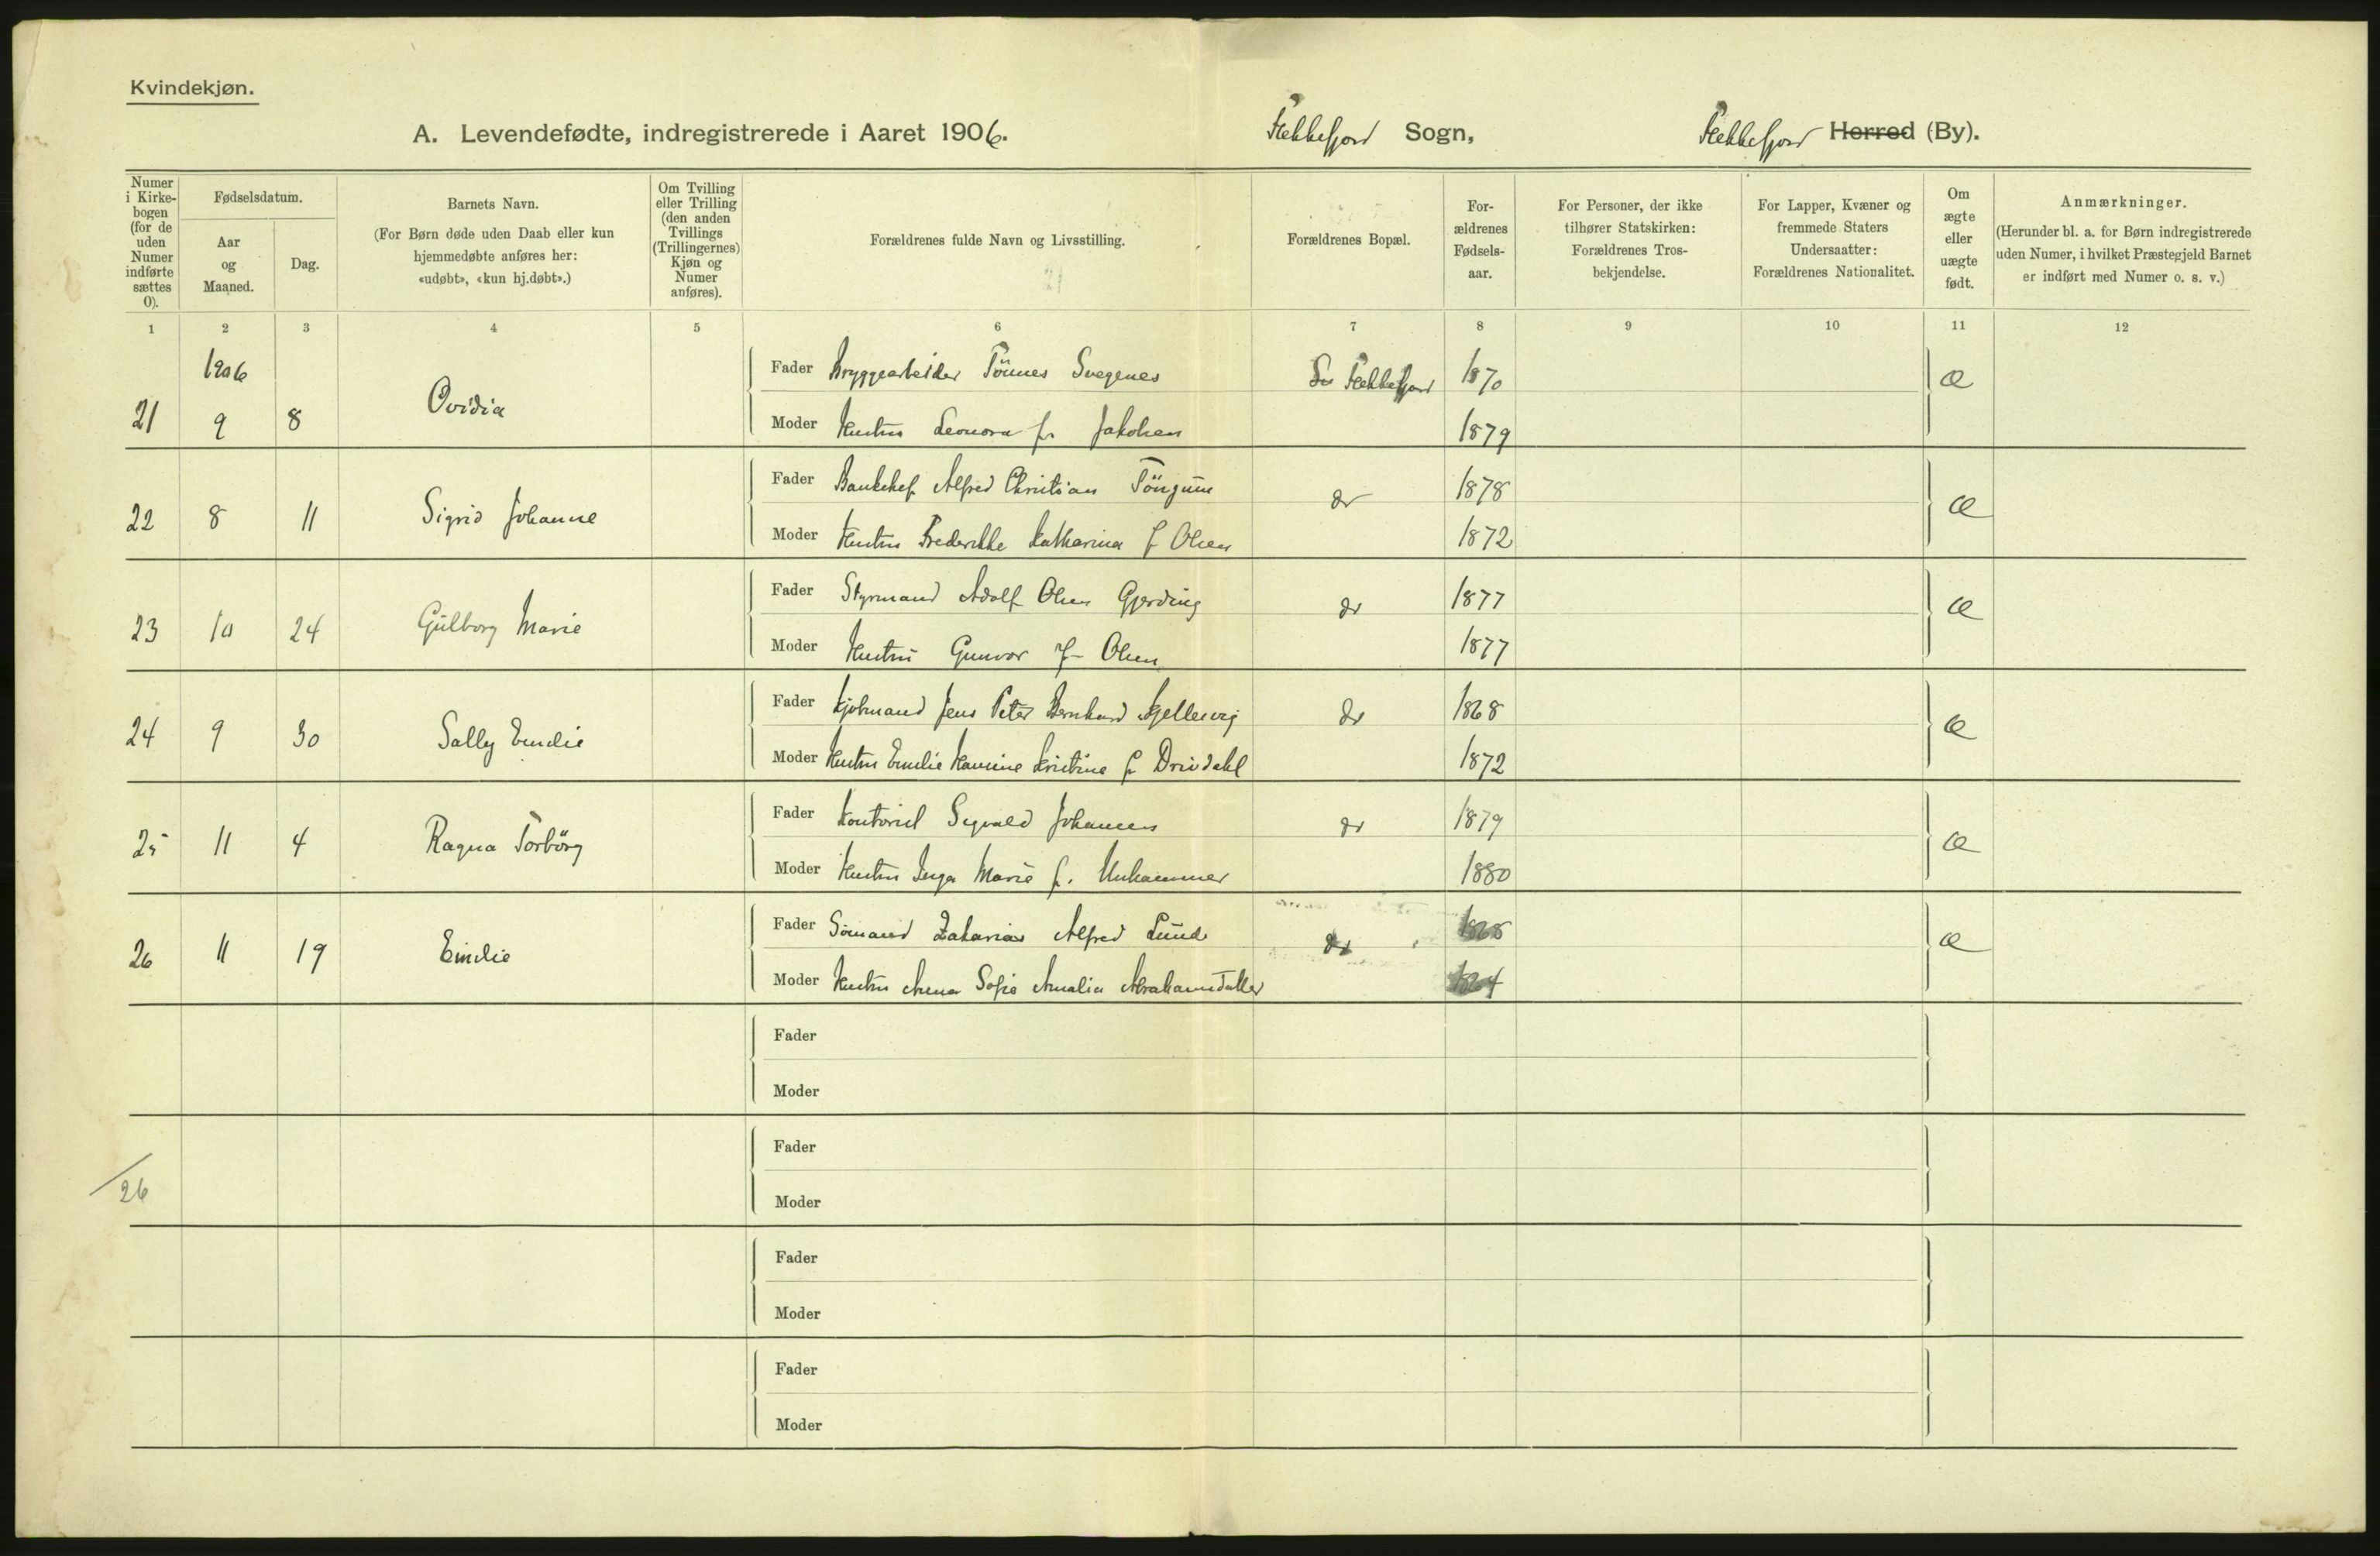 Kvindekjøn.
A. Levendefødte, indregistrerede i Aaret 1906. Flekkefjord Sogn, Flekkefjord Herred (By).
Numer i Kirke-bogen (for de uden Numer indførte sættes 0).
Fødselsdatum.
Aar og Maaned.
Dag.
Barnets Navn.
(For Børn døde uden Daab eller kun hjemmedøbte anføres her: «udøbt», «kun hj.døbt».)
Om Tvilling eller Trilling (den anden Tvillings (Trillingernes) Kjøn og Numer anføres).
Forældrenes fulde Navn og Livsstilling.
Forældrenes Bopæl.
For-ældrenes Fødsels-aar.
For Personer, der ikke tilhører Statskirken: Forældrenes Tros-bekjendelse.
For Lapper, Kvæner og fremmede Staters Undersaatter: Forældrenes Nationalitet.
Om ægte eller uægte født.
Anmærkninger.
(Herunder bl. a. for Børn indregistrerede uden Numer, i hvilket Præstegjeld Barnet er indført med Numer o. s. v.)
1 2 3 4 5 6 7 8 9 10 11 12
1906
Fader Bryggearbeider Tönnes Svegenes Flekkefjord 1870 æ
21 9 8 Ovidia
Moder Hustru Leonora f. Jakobsen 1879
Fader Alfred Christian do 1878 æ
22 8 11 Sigrid Johanne
Moder Hustru Frederikke Katharina f Olsen 1872
Fader Styrmand Adolf Olsen Gjerding do 1877 æ
23 10 24 Gülborg Marie
Moder Hustru Gunvor f Olsen 1877
Fader Kjöbmand Jens Peter Bernhard do 1868 æ
24 9 30 Sally Emilie
Moder Hustru Emilie Kristine f Drivdahl 1872
Fader Kontorist Sigvald Johansen do 1879 æ
25 11 4 Ragna Torbörg
Moder Hustru Inga Marie f. Unhammer 1880
Fader Sömand Zakarias Alfred Lund do 1868 æ
26 11 19 Emilie
Moder Hustru Anna Sofie Amalia 1864
Fader
Moder
Fader
26
Moder
Fader
Moder
Fader
Moder